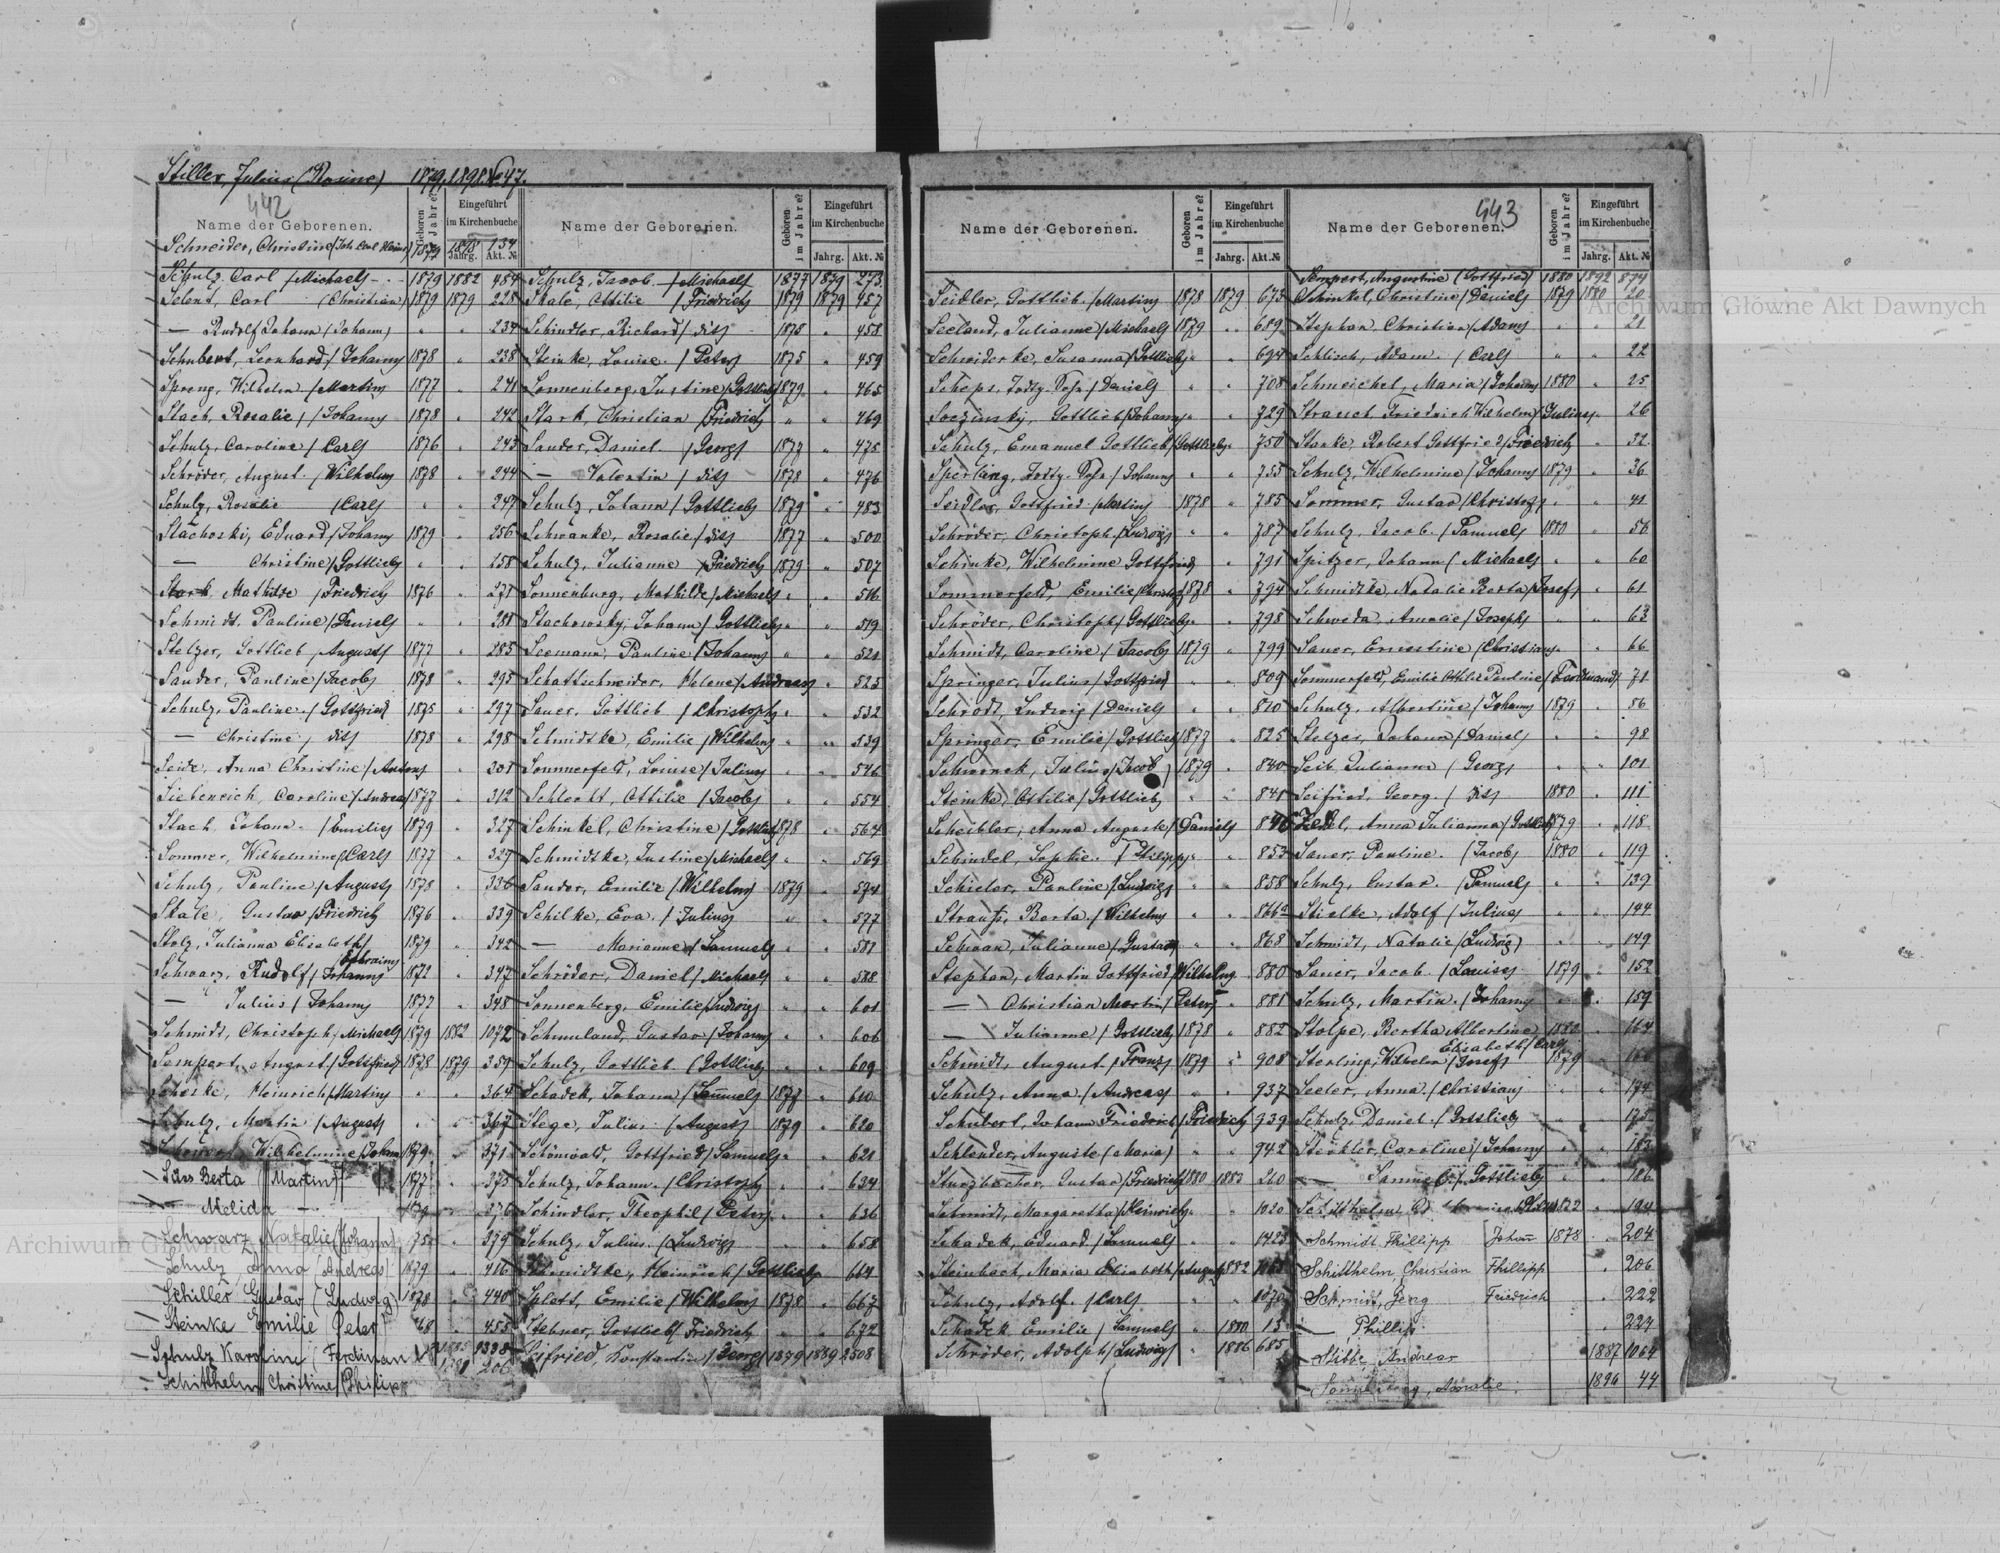 Stiller, Julius (Rosine) 1879, 1898 No 47.
442
Name der Geborenen. Geboren im Jahre? Eingeführt im Kirchenbuche Jahrg. Akt. №
Schneider, Christine (Joh. Carl Heinr) 1879 1878 134
Schulz, Carl /Michael/ 1879 1882 484
Selent, Carl (Christian) 1879 1879 228
— Rudolf Johann /Johann/ " " 234
Schubert, Leonhard /Johann/ 1878 " 238
Spreng, Wilhelm /Martin/ 1877 " 241
Stach, Rosalie /Johann/ 1878 " 242
Schulz, Caroline /Carl/ 1876 " 243
Schröder, August /Wilhelm/ 1878 " 244
Schulz, Rosalie /Carl/ " " 247
Stachoski, Eduard /Johann/ 1879 " 256
— Christine /Gottlieb/ " " 258
Stark, Mathilde /Friedrich/ 1876 " 271
Schmidt, Pauline /Daniel/ " " 281
Stelzer, Gottlieb /August/ 1877 " 285
Sander, Pauline /Jacob/ 1878 " 295
Schulz, Pauline /Gottfried/ 1875 " 297
— Christine / dis/ 1878 " 298
Seide, Anna Christine /Anton/ " "
Siebeneich, Caroline /Andreas/ 1877 " 312
Stach, Johann /Emilie/ 1879 " 327
Sommer, Wilhelmine /Carl/ 1877 " 329
Schulz, Pauline /August/ 1878 " 336
Skale, Gustav /Friedrich/ 1876 " 339
Stolz, Julianna Elisabeth / Ephraim/ 1879 " 342
Schwarz, Rudolf /Johann/ 1872 " 347
— Julius /Johann/ 1877 " 348
Schmidt, Christoph /Michael/ 1879 1882 1072
Sempert, August /Gottfried/ 1878 1879 359
Heinrich /Martin/ " " 364
Schulz, Martin /August/ " " 367
Wilhelmine /Johann/ 1879 " 371
Säss Berta (Martin) 1877 " 375
— Melida — " 376
Schwarz Natalie (Johann) 75 " 379
Schulz Anna (Andreas) 1879 " 416
Schiller Gustav (Ludwig) 1878 " 440
Steinke Emilie Peter 78 " 455
Schulz Karoline (Ferdinand)
Schitthelm Christine (Philipp
Name der Geborenen. Geboren im Jahre? Eingeführt im Kirchenbuche Jahrg. Akt. №
Schulz, Jacob /Michael/ 1877 1879 273
Skale, Ottilie /Friedrich/ 1879 1879 457
Schindler, Richard / dis/ 1878 " 458
Steinke, Louise /Peter/ 1875 " 459
Sonnenberg, Justine /Gottlieb/ 1879 " 465
Stark, Christian /Friedrich/ " " 469
Sander, Daniel /Georg/ 1877 " 475
— Valentin / dis/ 1878 " 476
Schulz, Johann /Gottlieb/ 1879 " 483
Schwanke, Rosalie / dis/ 1877 " 500
Schulz, Julianne /Friedrich/ 1879 " 507
Sonnenburg, Mathilde /Michael/ " " 516
Stachowsky, Johann /Gottlieb/ " " 519
Seemann, Pauline /Johann/ " " 521
Schattschneider, Helene /Andreas/ " 525
Sauer, Gottlieb /Christoph/ " " 532
Schmidtke, Emilie /Wilhelm/ " " 539
Sommerfeld, Louise /Julius/ " " 546
Schlecht, Ottilie /Jacob/ " " 554
Schinkel, Christine /Gottlieb/ 1878 " 564
Schmidtke, Justine /Michael/ " " 569
Sander, Emilie /Wilhelm/ 1879 " 574
Schilke, Eva /Julius/ " " 577
— Marianne /Samuel/ " " 581
Schröder, Daniel /Michael/ " " 588
Sonnenberg, Emilie /Ludwig/ " " 601
Schmuland, Gustav /Johann/ " " 606
Schulz, Gottlieb /Gottlieb/ " " 609
Schadek, Johann /Samuel/ 1877 " 610
Stege, Julius /August/ 1879 " 620
Schönwald, Gottfried /Samuel/ " " 621
Schulz, Johann /Christoph/ " " 634
Schindler, Theophil /Peter/ " " 636
Schulz, Julius /Ludwig/ " " 658
Schmidtke, Heinrich /Gottlieb/ " 664
Splett, Emilie /Wilhelm/ 1878 " 667
Stebner, Gottlieb /Friedrich/ " " 672
Seifried, Konstantin /Georg/ 1879 1889 2508
443
Name der Geborenen. Geboren im Jahre? Eingeführt im Kirchenbuche Jahrg. Akt. №
Seidler, Gottlieb /Martin/ 1878 1879 673
Seeland, Julianne /Michael/ 1879 " 689
Schwiderke, Susanna /Gottlieb/ " " 694
Scheps, Todtg. Sohn /Daniel/ " " 708
Soczinsky, Gottlieb /Johann/ " " 729
Schulz, Emanuel Gottlieb /Gottlieb/ " 750
Sperling, Todtg. Sohn /Johann/ " " 755
Seidler, Gottfried /Martin/ 1878 " 785
Schröder, Christoph /Ludwig/ " " 787
Schinke, Wilhelmine Gottfried " 791
Sommerfeld, Emilie /Christof/ 1878 " 794
Schröder, Christoph /Gottlieb/ " " 798
Schmidt, Caroline /Jacob/ 1879 " 799
Springer, Julius /Gottfried/ " 809
Schrödt, Ludwig /Daniel/ " " 810
Springer, Emilie /Gottlieb/ 1877 " 825
Julius /Jacob/ 1879 " 840
Steinke, Ottilie /Gottlieb/ " " 841
Scheibler, Anna Auguste /Daniel/
Schindel, Sophie /Philipp/ " " 853
Schieler, Pauline /Ludwig/ " " 858
Strauß, Berta /Wilhelm/ " " 866a
Schwan, Julianne /Gustav/ " " 868
Stephan, Martin Gottfried /Wilhelm/ 880
— Christian Martin /Peter/ " 881
— Julianne /Gottlieb/ 1878 " 882
Schmidt, August /Franz/ 1879 " 908
Schulz, Anna /Andreas/ " " 937
Schubert, Johann Friedrich /Friedrich/ 939
Schlender, Auguste /Maria/ " " 942
Sturzbecher, Gustav /Friedrich/ 1880 1882 260
Schmidt, Margaretha /Heinrich/ " " 1020
Schadek, Eduard /Samuel/ " " 1423
Steinbach, Maria Elisabeth /August/ 1882
Schulz, Adolf /Carl/ " " 1070
Schadek Emilie /Samuel/ " 1880 13
Schröder, Adolph /Ludwig/ " 1886 685
Name der Geborenen. Geboren im Jahre? Eingeführt im Kirchenbuche Jahrg. Akt. №
Sempert, Augustine (Gottfried) 1880 1892 874
Schinkel, Christine /Daniel/ 1879 1880 20
Stephan, Christian /Adam/ " " 21
Schlisch, Adam /Carl/ " " 22
Schmeichel, Maria /Johann/ 1880 " 25
Strauch Friedrich Wilhelm /Julius/ " 26
Stanke, Robert Gottfried /Friedrich/ " 32
Schulz, Wilhelmine /Johann/ 1879 " 36
Sommer, Gustav /Christof/ " " 41
Schulz, Jacob /Samuel/ 1880 " 56
Spitzer, Johann /Michael/ " " 60
Schmidtke, Natalie Berta /Josef/ " 61
Schweda, Amalie /Joseph/ " " 63
Sauer, Ernestine /Christian/ " 66
Sommerfeld, Emilie Othlie Pauline /Ferdinand/ 71
Schulz, Albertine /Johann/ 1879 " 86
Stelzer, Johann /Daniel/ " " 98
Seib Julianna /Georg/ " " 101
Seifried, Georg / dis/ 1880 " 111
Anna Julianna /Gottlieb/ 1879 " 118
Sauer, Pauline /Jacob/ 1880 " 119
Schulz, Gustav /Samuel/ " " 139
Stielke, Adolf /Julius/ " " 144
Schmidt, Natalie (Ludwig) " " 149
Sauer, Jacob /Louise/ 1879 " 152
Schulz, Martin /Johann/ " " 159
Stolpe, Bertha Albertine Elisabeth /Carl/ 164
Sterling, Wilhelm /Josef/ 1879 "
Seeler, Anna /Christian/ " " 174
Schulz, Daniel /Gottlieb/ " " 175
Steckler, Caroline /Johann/ " "
— Samuel /Gottlieb/ " " 186
Schitthelm, 194
Schmidt Phillipp Johan 1878 " 204
Schitthelm, Christian Phillipp " 206
Schmidt, Georg Friedrich " 222
— Phillip " 224
Stibbe, Andreas 1887 1064
1896 44
Archiwum Główne Akt Dawnych
Archiwum Główne Akt Dawnych